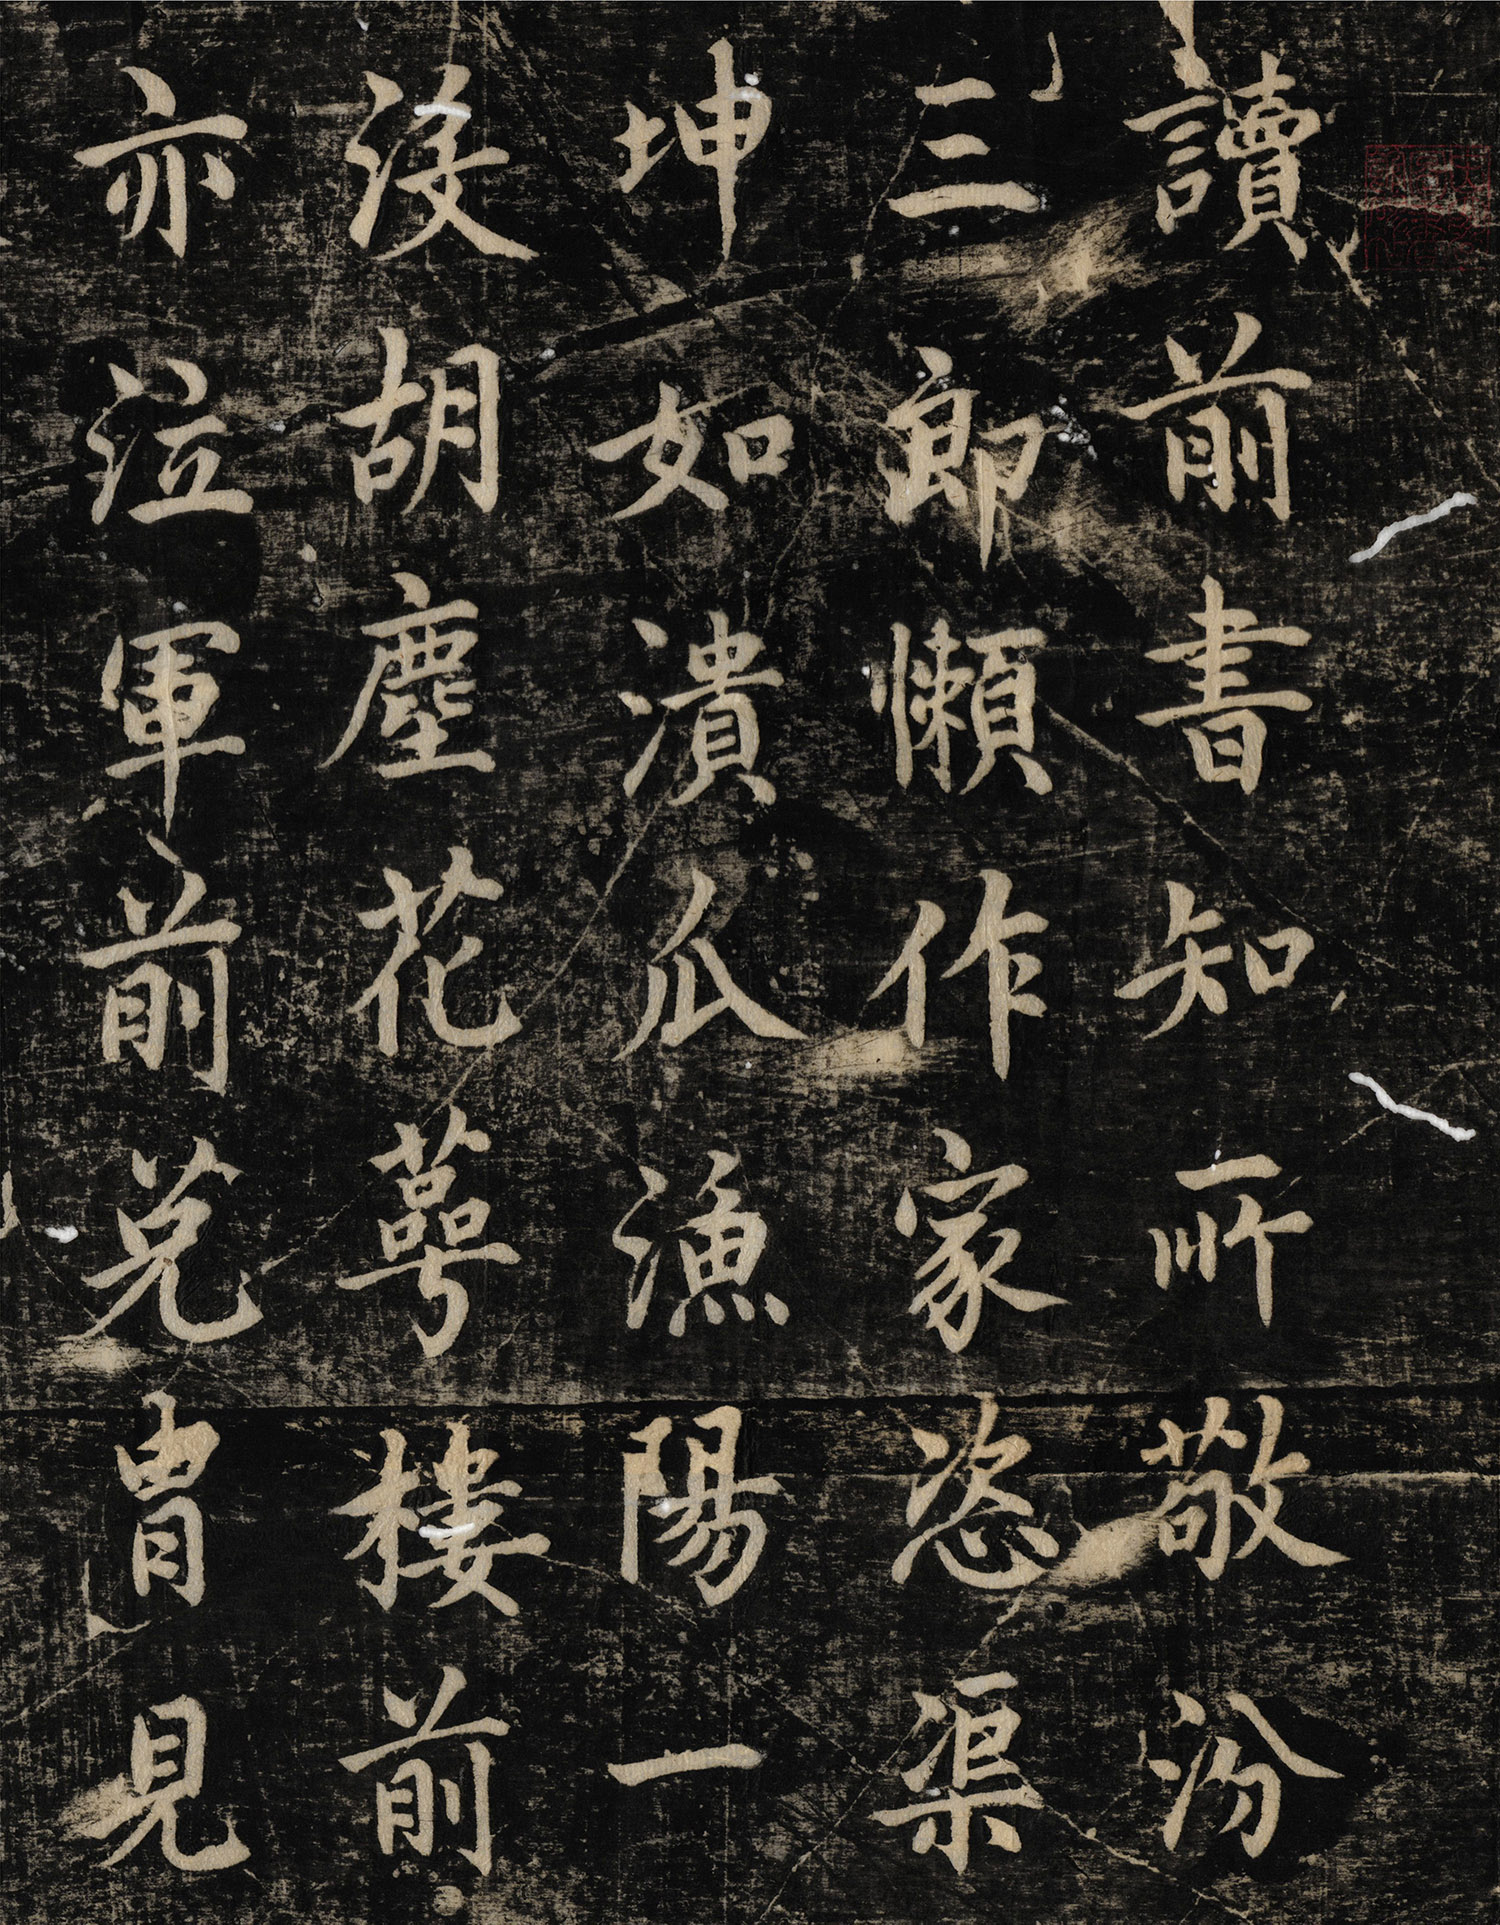 讀前書知所敬汾
三郎懶作家恣渠
坤如潰瓜漁陽一
没胡塵花萼樓前
亦泣軍前免胄見